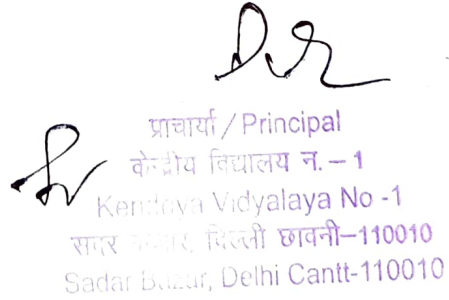 प्राचार्या / Principal
केन्द्रीय विद्यालय न. – 1
Kendriya Vidyalaya No -1
सदर बाजार, दिल्ली छावनी–110010
Sadar Bazar, Delhi Cantt-110010